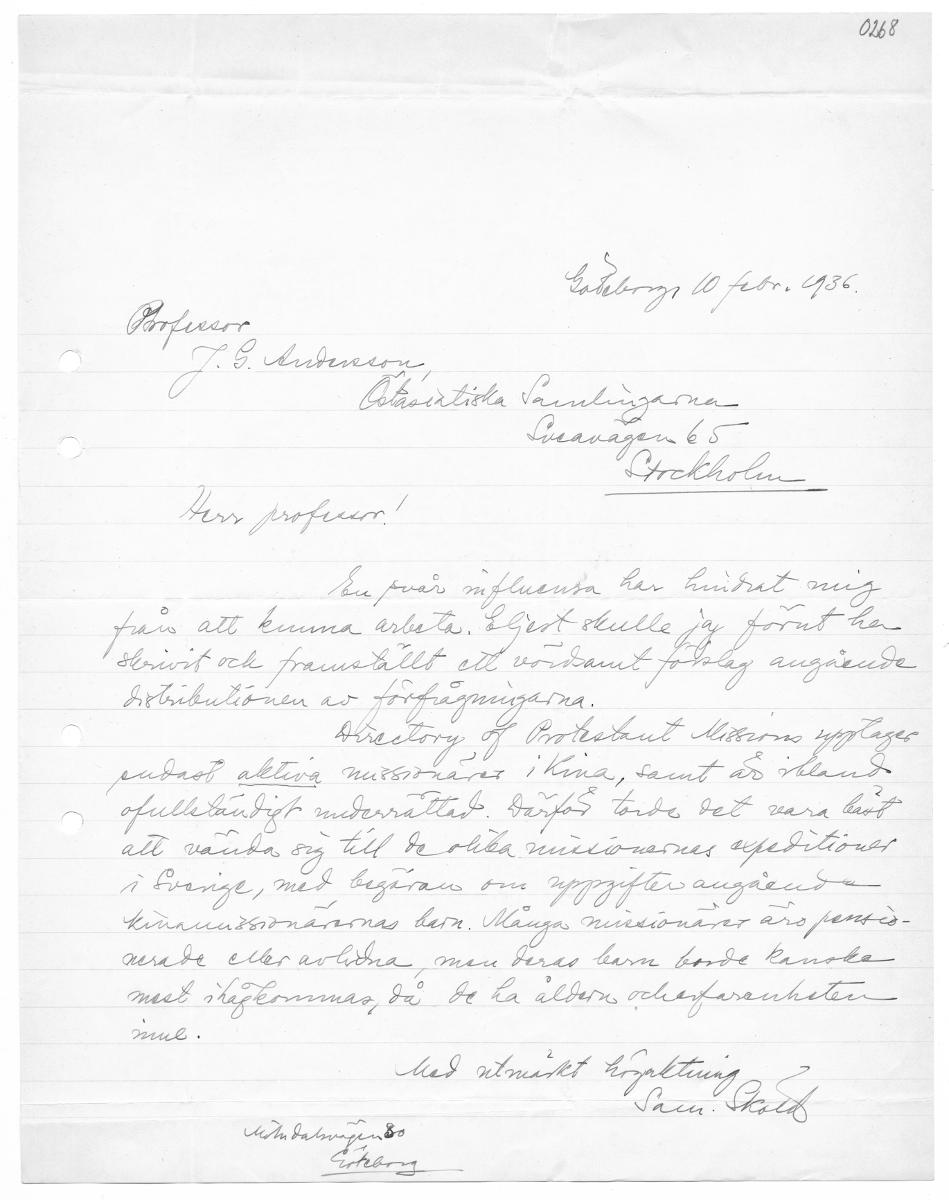 0268
Göteborg, 10 febr. 1936.
Professor
J. G. Andersson,
Östasiatiska Samlingarna
Sveavägen 65
Stockholm
Herr professor!
En svår influensa har hindrat mig
från att kunna arbeta. Eljest skulle jag förut ha
skrivit och framställt ett vördsamt förslag angående
distributionen av förfrågningarna.
Directory of Protestant Missions upptager
endast aktiva missionärer i Kina, samt är ibland
ofullständigt underrättad. Därför torde det vara bäst
att vända sig till de olika missionernas expeditioner
i Sverige, med begäran om uppgifter angående
kinamissionärernas barn. Många missionärer äro pensio-
nerade eller avlidna, men deras barn borde kanske
mest ihågkommas, då de ha åldern och erfarenheten
inne.
Med utmärkt högaktning
Sam. Sköld
Mölndalsvägen 30
Göteborg